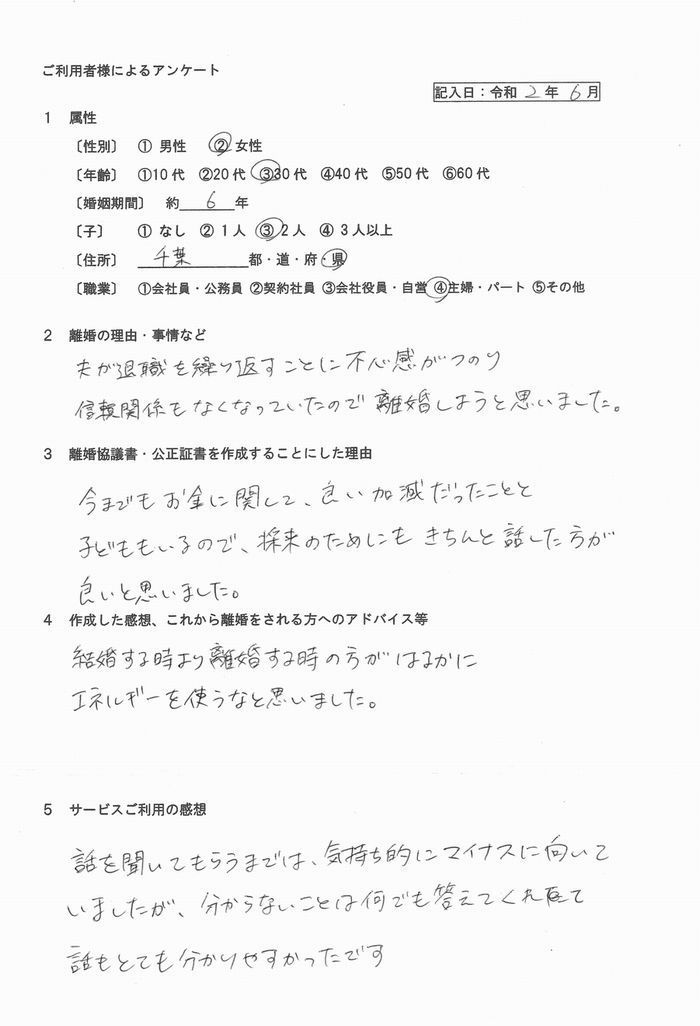 ご利用者様によるアンケート
記入日：令和 2 年 6 月
1 属性
〔性別〕 ① 男性 ② 女性
〔年齢〕 ①10代 ②20代 ③30代 ④40代 ⑤50代 ⑥60代
〔婚姻期間〕 約 6 年
〔子〕 ① なし ② 1人 ③ 2人 ④ 3人以上
〔住所〕 千葉 都・道・府・県
〔職業〕 ①会社員・公務員 ②契約社員 ③会社役員・自営 ④主婦・パート ⑤その他
2 離婚の理由・事情など
夫が退職を繰り返すことに不心感がつのり
信頼関係もなくなっていたので離婚しようと思いました。
3 離婚協議書・公正証書を作成することにした理由
今までもお金に関して、良い加減だったことと
子どももいるので、将来のためにもきちんと話した方が
良いと思いました。
4 作成した感想、これから離婚をされる方へのアドバイス等
結婚する時より離婚する時の方がはるかに
エネルギーを使うなと思いました。
5 サービスご利用の感想
話を聞いてもらうまでは、気持ち的にマイナスに向いて
いましたが、分からないことは何でも答えてくれて
話もとても分かりやすかったです